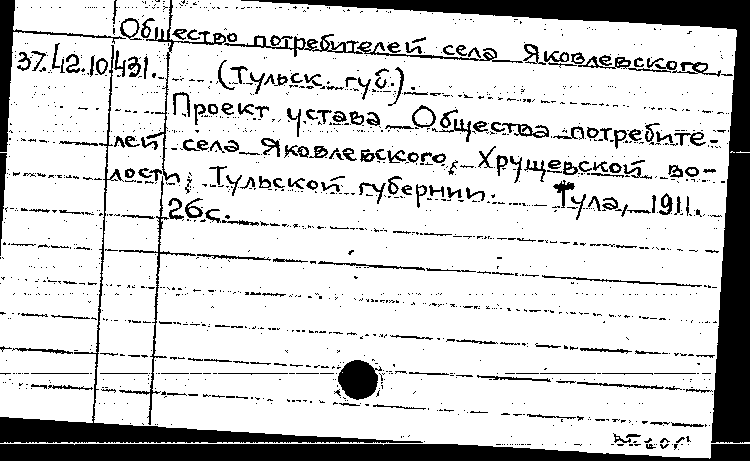 Общество потребителей села Яковлевского.
37.42.10.431. (Тульск. губ.).
Проект устава Общества потребите-
лей села Яковлевского, Хрущевской во-
лости, Тульской губернии. Тула, 1911.
26с.